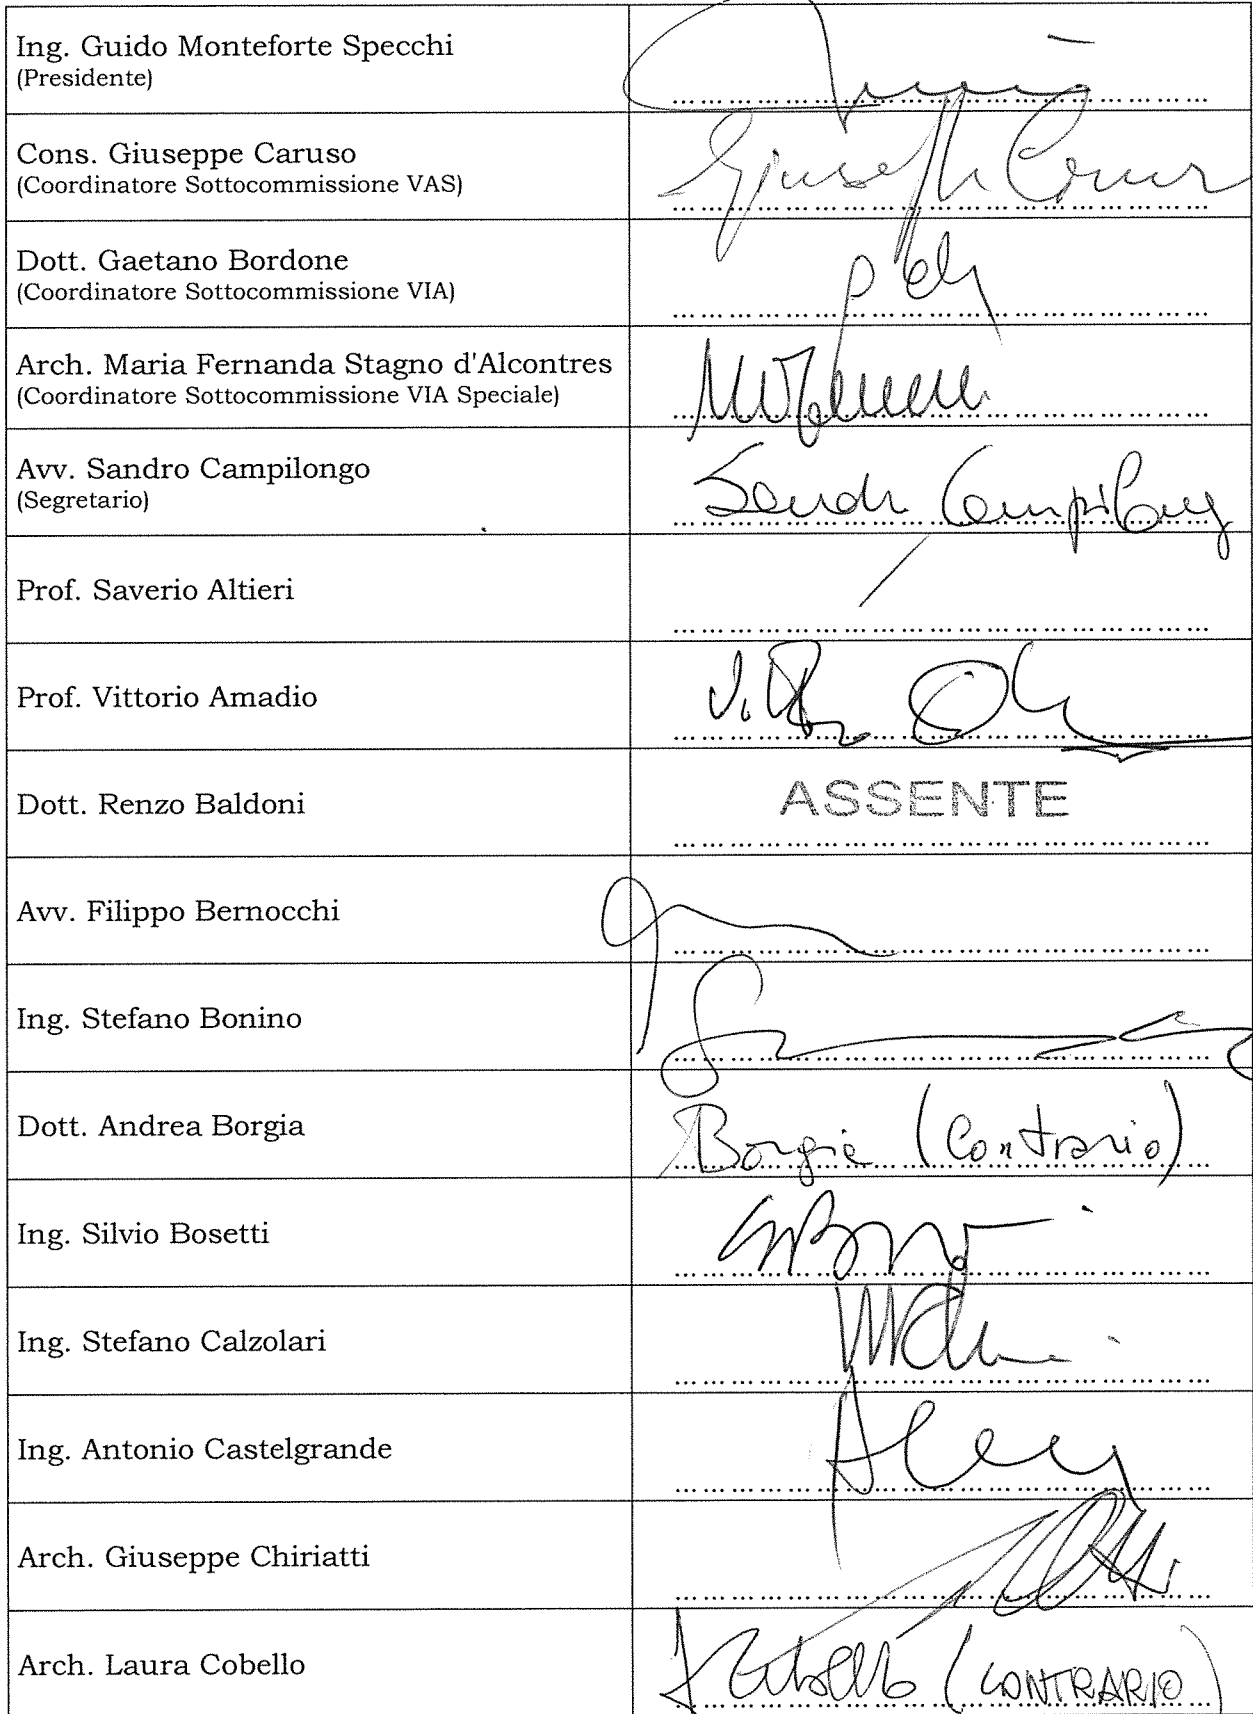 Ing. Guido Monteforte Specchi
(Presidente)
Cons. Giuseppe Caruso
(Coordinatore Sottocommissione VAS)
Giuseppe Caruso
Dott. Gaetano Bordone
(Coordinatore Sottocommissione VIA)
Arch. Maria Fernanda Stagno d'Alcontres
(Coordinatore Sottocommissione VIA Speciale)
Avv. Sandro Campilongo
(Segretario)
Sandro Campilongo
Prof. Saverio Altieri
Prof. Vittorio Amadio
Dott. Renzo Baldoni
ASSENTE
Avv. Filippo Bernocchi
Ing. Stefano Bonino
Dott. Andrea Borgia
Borgia (Contrario)
Ing. Silvio Bosetti
Ing. Stefano Calzolari
Ing. Antonio Castelgrande
Arch. Giuseppe Chiriatti
Arch. Laura Cobello
(CONTRARIO)